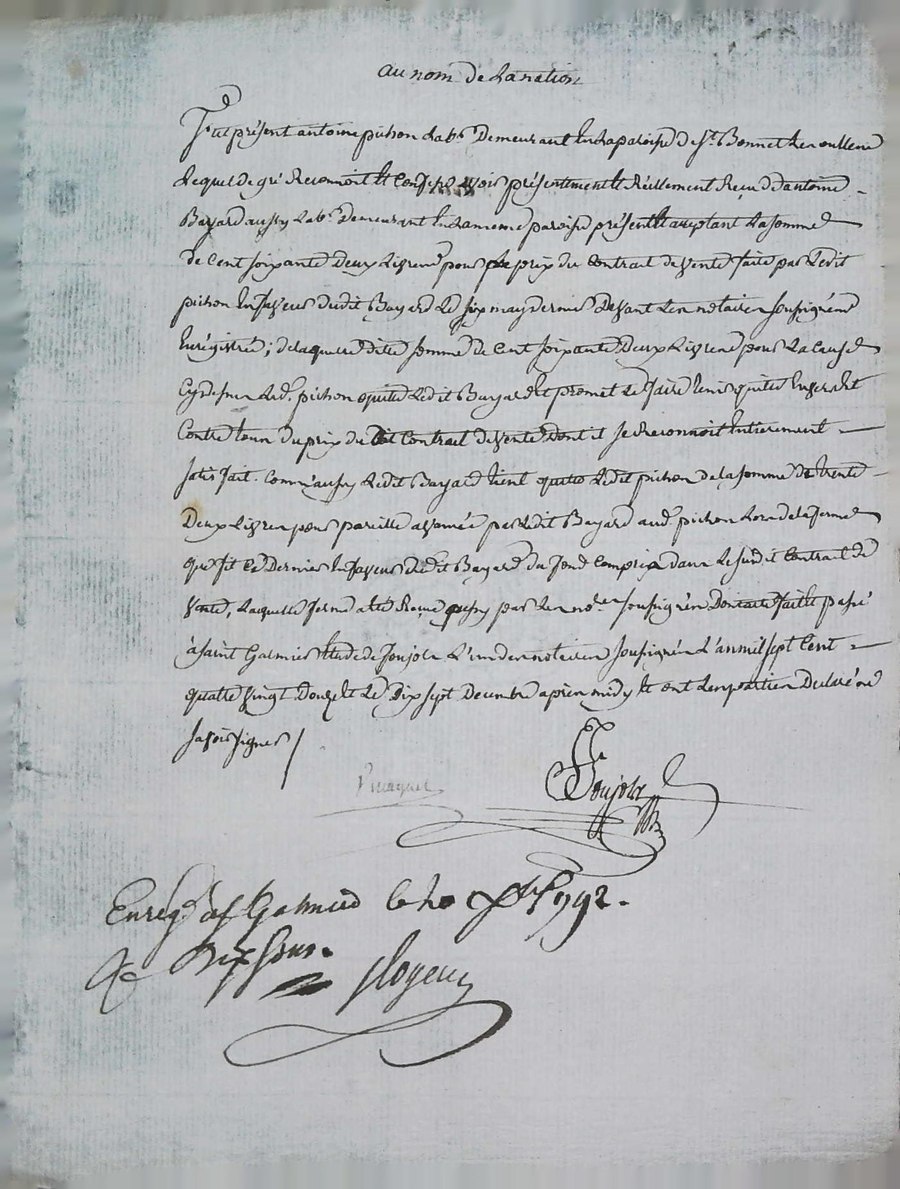 au nom de la nation
Fut présent antoine pichon lab.r Demeurant En la paroisse de S.t Bonnet les oulles
Lequel de gré Reconnoit Et Confesse avoir présentement Et Réellement Reçu d'antoine
Bayard aussy lab.r demeurant En la meme paroisse présent Et acceptant la somme
de Cent soixante Deux Livres pour le prix du Contrat de Vente faite par Ledit
pichon En faveur dudit Bayard Le six may dernier Devant Les notaires soussignés
Enrégistré; de laquelle dite somme de Cent soixante Deux Livres pour La Cause
Cy dessus led. pichon quitte Ledit Bayard Et promet Le faire tenir quitte Envers Et
Contre tous du prix du dit Contrat de Vente Dont il se Reconnoit Entierement
satisfait. Comm'aussy Ledit Bayard tient quitte Ledit pichon de la somme de trente
Deux Livres pour pareille avancée par Ledit Bayard aud. pichon Lors de la ferme
que fit Ce Dernier En faveur dudit Bayard du fond Compris dans Le susdit Contrat de
Vente, Laquelle ferme a été Reçue aussy par Les no.res soussignés Dont acte fait Et passé
à Saint Galmier Etude de Jonjolz L'un des notaires soussignés L'an mil sept Cent
quatre vingt Douze Et Le Dix sept Decembre après midy Et ont Les parties Declaré ne
savoir signer /
Jonjolz
Enrég.é à S.t Galmier le 20 X.bre 1792.
R. Dix sous.